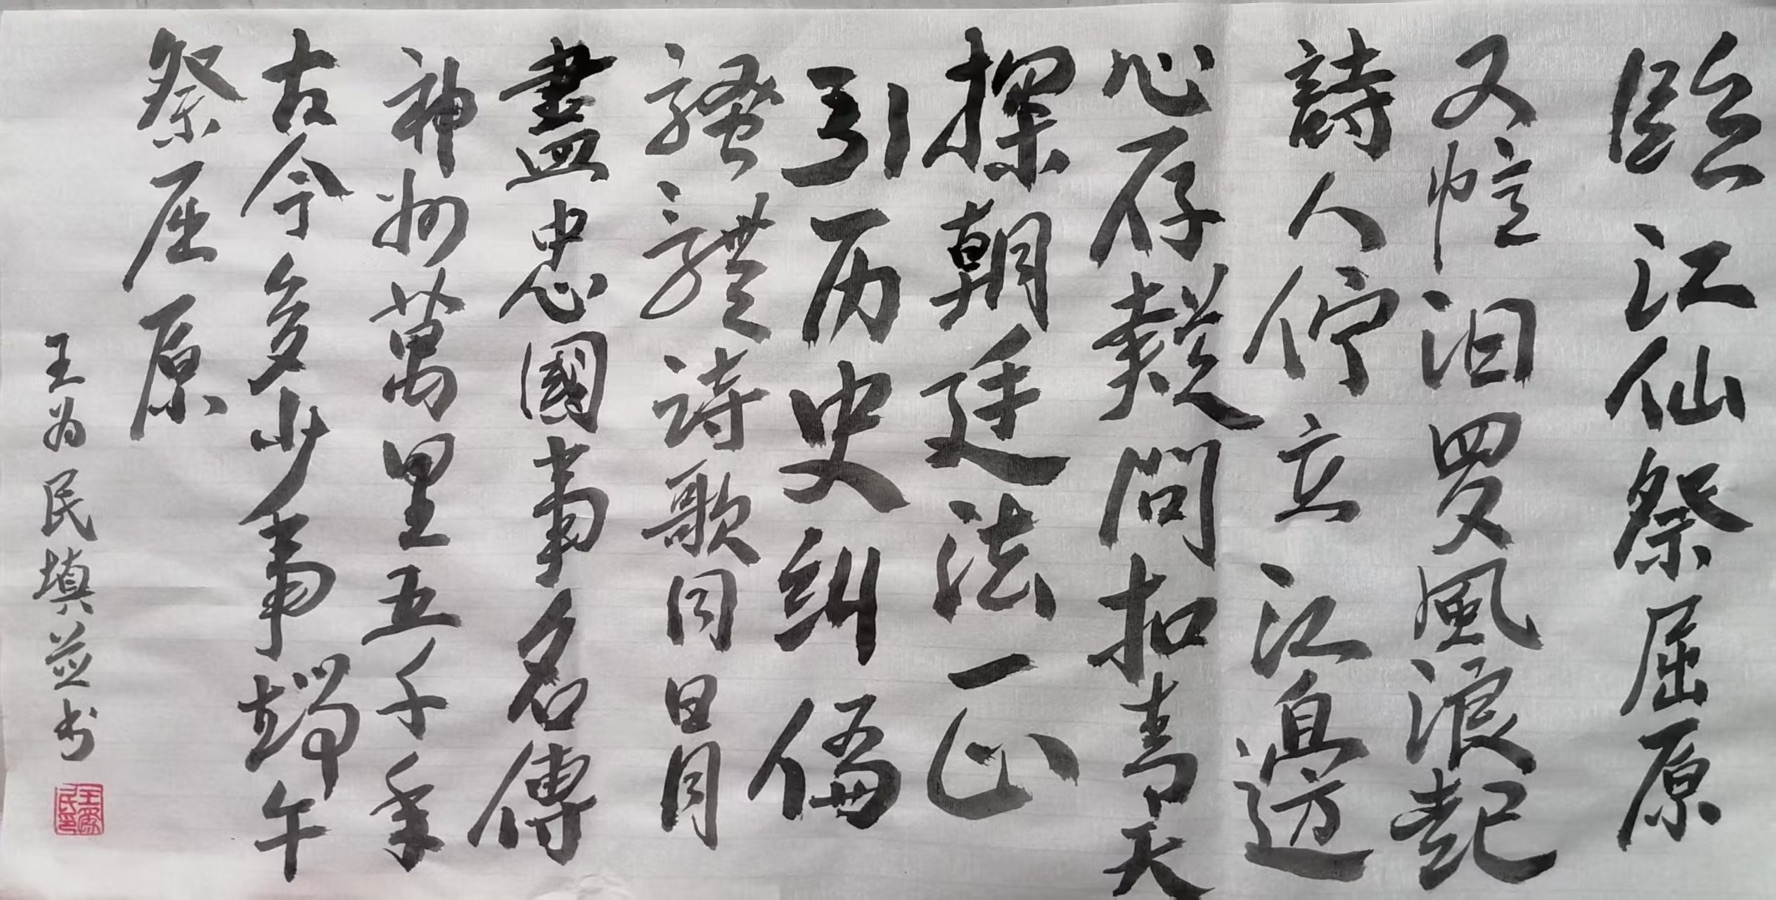 臨江仙祭屈原
又憶汨罗風浪起
詩人佇立江邊
心存疑問扣青天
探朝廷法正
引历史糾偏
騷體詩歌同日月
盡忠國事名傳
神州萬里五千年
古今多少事端午
祭屈原
王为民填並书